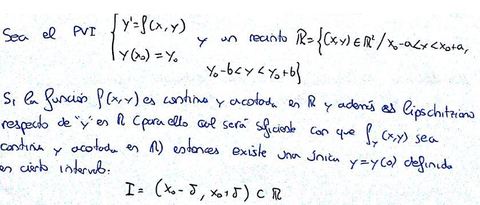 Sea el PVI { y'=f(x,y) y un recinto R={(x,y)∈ℝ²/x₀-a<x<x₀+a,
y(x₀)=y₀ y₀-b<y<y₀+b}
Si la función f(x,y) es continua y acotada en R y además es lipschitziana
respecto de "y" en R (para ello cual será suficiente con que f_y(x,y) sea
continua y acotada en R) entonces existe una única y=y(x) definida
en cierto intervalo:
I = (x₀-δ, x₀+δ) ⊂ R